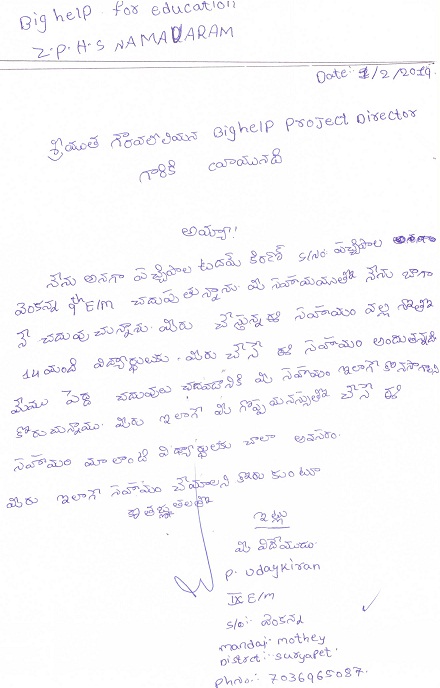 Big help for education
Z.P.H.S NAMAVARAM
Date: 1/2/2019.
శ్రీయుత గౌరవనీయులైన Bighelp Project Director
గారికి
అయ్యా!
నేను అనగా పచ్చిపాల ఉదయ్ కిరణ్ S/o పచ్చిపాల
వెంకన్న 9th E/M చదువుతున్నాను. మీ సహాయముతో నేను బాగా
నే చదువుచున్నాను. మీరు చేస్తున్న ఈ సహాయం వల్ల
14 మంది విద్యార్థులకు. మీరు చేసే ఈ సహాయం అందుతున్నది
మేము పెద్ద చదువులు చదవడానికి మీ సహాయం ఇలాగే కొనసాగాలని
కోరుచున్నాము. మీరు ఇలాగే మీ గొప్ప మనస్సుతో చేసే ఈ
సహాయం మా లాంటి విద్యార్థులకు చాలా అవసరం.
మీరు ఇలాగే సహాయం చేయాలని కోరుకుంటూ
కృతజ్ఞతలతో
ఇట్లు
మీ విధేయుడు
P. Udaykiran
IX E/M
S/o: వెంకన్న
mandal: mothey
District: Suryapet.
Phno: 7036965087.